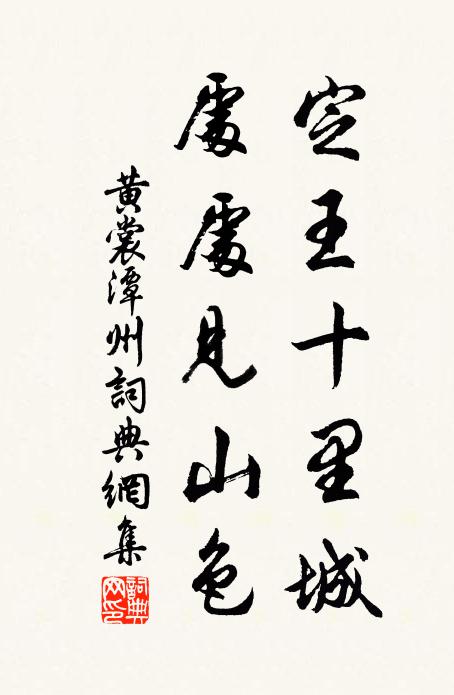 定王十里城
處處見山色
黄裳潭州詞典網集
詞典網印